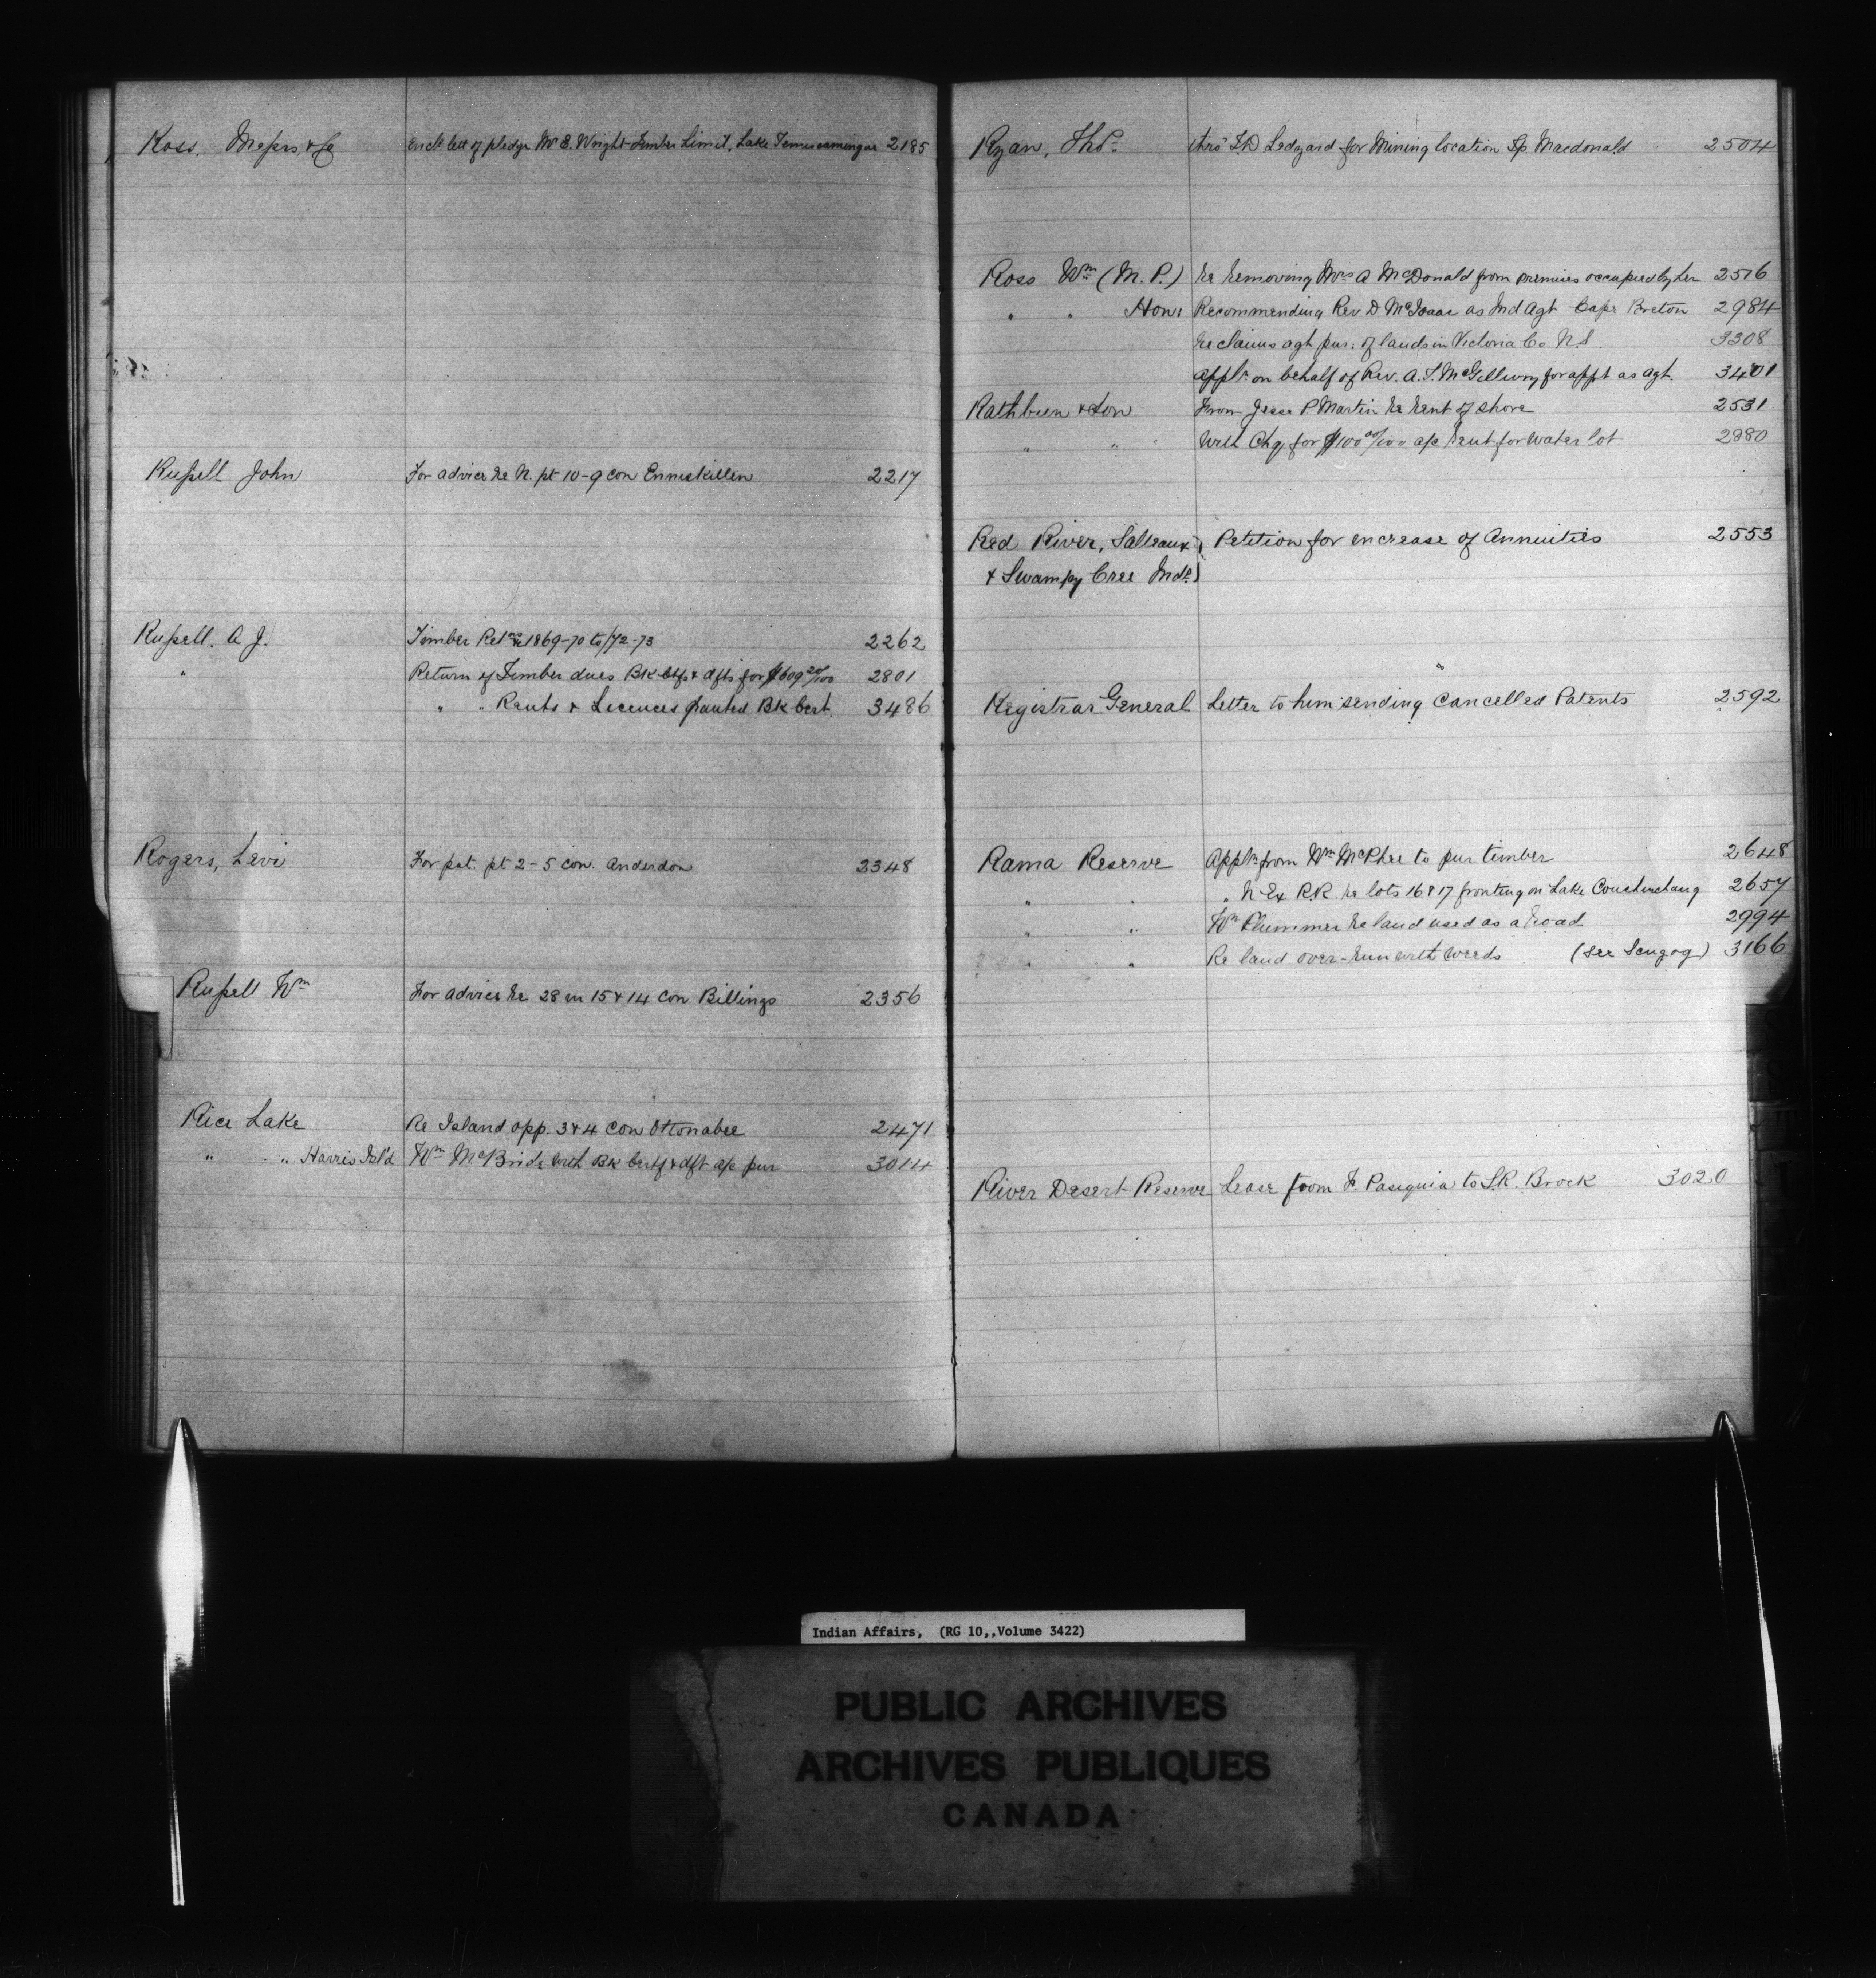 Ross, Messrs & Co encl. lett of pledge W. E. Wright Timber Limit, Lake Temiscamingue 2185
Russell John For advice re N. pt 10-9 con Enniskillen 2217
Russell. A J. Timber Retns 1869-70 to /72-73 2262
" Return of Timber dues Bk Ctfs & dfts for $609 20/100 2801
" " Rents & Licences granted Bk Cert. 3486
Rogers, Levi For pat. pt 2-5 con. Anderdon 2348
Russell Wm For advice re 28 in 15 & 14 con Billings 2356
Rice Lake Re Island opp. 3 & 4 con Ottonabee 2471
" " Harris Isl'd Wm McBride with Bk Certf & dft a/c pur 3014
Ryan, Thos. thro' T.D Ledyard for Mining location Tp. Macdonald 2504
Ross Wm (M. P.) re removing Mrs A McDonald from premises occupied by her 2516
" " Hon: Recommending Rev D McIsaac as Ind Agt Cape Breton 2984
re claims agt pur: of lands in Victoria Co N.S. 3308
Appln on behalf of Rev. A. McGillivry for appt as Agt. 3401
Rathbun & Son From Jesse P Martin re rent of shore 2531
" " With Chq for $100 00/100 a/c rent for water lot 2880
Red River, Salteaux Petition for increase of Annuities 2553
& Swampy Cree Inds.
Registrar General Letter to him sending Cancelled Patents 2592
Rama Reserve Appln from Wm McPhee to pur timber 2648
" " " N Ex R.R. re lots 16 & 17 fronting on Lake Couchiching 2657
" " Wm Plummer re land used as a road 2994
" " Re land over-run with weeds (see Scugog) 3166
River Desert Reserve Lease from F. Pasiguia to S.R. Brock 3020
Indian Affairs, (RG 10,,Volume 3422)
PUBLIC ARCHIVES
ARCHIVES PUBLIQUES
CANADA